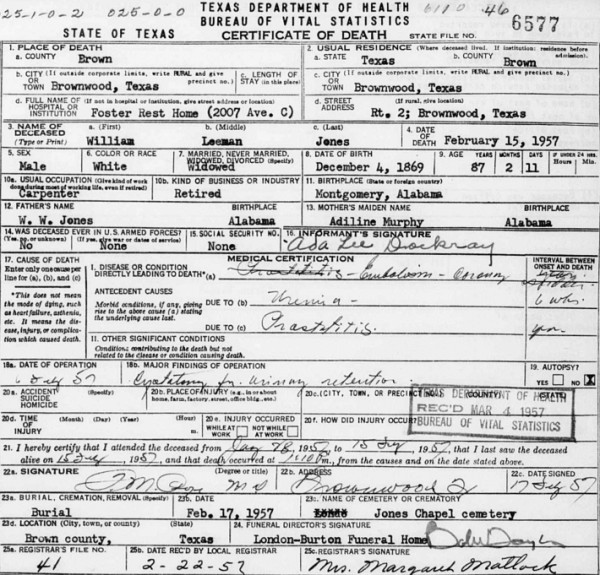 025-1-0-2 025-0-0 TEXAS DEPARTMENT OF HEALTH 6110 46
BUREAU OF VITAL STATISTICS
STATE OF TEXAS CERTIFICATE OF DEATH STATE FILE NO. 6577
1. PLACE OF DEATH 2. USUAL RESIDENCE (Where deceased lived. If institution: residence before admission).
a. COUNTY Brown a. STATE Texas b. COUNTY Brown
b. CITY (If outside corporate limits, write RURAL and give precinct no.) OR TOWN Brownwood, Texas c. LENGTH OF STAY (in this place) c. CITY (If outside corporate limits, write RURAL and give precinct no.) OR TOWN Brownwood, Texas
d. FULL NAME OF HOSPITAL OR INSTITUTION (If not in hospital or institution, give street address or location) Foster Rest Home (2007 Ave. C) d. STREET ADDRESS (If rural, give location) Rt. 2; Brownwood, Texas
3. NAME OF DECEASED (Type or Print) a. (First) William b. (Middle) Leeman c. (Last) Jones 4. DATE OF DEATH February 15, 1957
5. SEX Male 6. COLOR OR RACE White 7. MARRIED, NEVER MARRIED, WIDOWED, DIVORCED (Specify) Widowed 8. DATE OF BIRTH December 4, 1869 9. AGE YEARS 87 MONTHS 2 DAYS 11 IF UNDER 24 HRS. Hours Min.
10a. USUAL OCCUPATION (Give kind of work done during most of working life, even if retired) Carpenter 10b. KIND OF BUSINESS OR INDUSTRY Retired 11. BIRTHPLACE (State or foreign country) Montgomery, Alabama
12. FATHER'S NAME W. W. Jones BIRTHPLACE Alabama 13. MOTHER'S MAIDEN NAME Adiline Murphy BIRTHPLACE Alabama
14. WAS DECEASED EVER IN U.S. ARMED FORCES? (Yes, no, or unknown) No (If yes, give war or dates of service) None 15. SOCIAL SECURITY NO. None 16. INFORMANT'S SIGNATURE Ada Lee Dockray
17. CAUSE OF DEATH MEDICAL CERTIFICATION INTERVAL BETWEEN ONSET AND DEATH
Enter only one cause per line for (a), (b), and (c) I. DISEASE OR CONDITION DIRECTLY LEADING TO DEATH* (a) Prostatitis - Embolism - Coronary
*This does not mean the mode of dying, such as heart failure, asthenia, etc. It means the disease, injury, or complication which caused death.
ANTECEDENT CAUSES
Morbid conditions, if any, giving rise to the above cause (a) stating the underlying cause last.
DUE TO (b) Uremia - 6 wks.
DUE TO (c) Prostatitis. yrs.
II. OTHER SIGNIFICANT CONDITIONS
Conditions contributing to the death but not related to the disease or condition causing death.
18a. DATE OF OPERATION 57 18b. MAJOR FINDINGS OF OPERATION for urinary retention 19. AUTOPSY? YES NO X
20a. ACCIDENT SUICIDE HOMICIDE (Specify) 20b. PLACE OF INJURY (e.g., in or about home, farm, factory, street, office bldg., etc.) 20c. (CITY, TOWN, OR PRECINCT NO.) (COUNTY) (STATE)
TEXAS DEPARTMENT OF HEALTH
REC'D MAR 4 1957
BUREAU OF VITAL STATISTICS
20d. TIME OF INJURY (Month) (Day) (Year) (Hour) m. 20e. INJURY OCCURRED WHILE AT WORK NOT WHILE AT WORK 20f. HOW DID INJURY OCCUR?
21. I hereby certify that I attended the deceased from Jan 28, 1957, to 15 Feb, 1957, that I last saw the deceased
alive on 15 Feb, 1957, and that death occurred at m., from the causes and on the date stated above.
22a. SIGNATURE (Degree or title) MD 22b. ADDRESS Brownwood 22c. DATE SIGNED 57
23a. BURIAL, CREMATION, REMOVAL (Specify) Burial 23b. DATE Feb. 17, 1957 23c. NAME OF CEMETERY OR CREMATORY Jones Chapel cemetery
23d. LOCATION (City, town, or county) (State) Brown county, Texas 24. FUNERAL DIRECTOR'S SIGNATURE London-Burton Funeral Home
25a. REGISTRAR'S FILE NO. 41 25b. DATE REC'D BY LOCAL REGISTRAR 2-22-57 25c. REGISTRAR'S SIGNATURE Mrs. Margaret Matlock